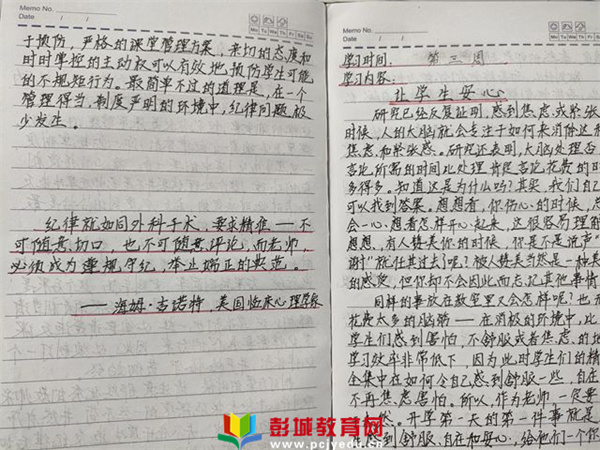 Memo No.
Date / /
Mo Tu We Th Fr Sa Su
于预防，严格的课堂管理方案，亲切的态度和
时时掌控的主动权可以有效地预防学生可能
的不规矩行为。最简单不过的道理是，在一个
管理得当、制度严明的环境中，纪律问题极
少发生。
纪律就如同外科手术，要求精准——不
可随意切口，也不可随意评论，而老师，
必须成为遵规守纪，举止端正的典范。
——海姆·吉诺特，美国临床心理学家
Memo No.
Date / /
Mo Tu We Th Fr Sa
学习时间： 第三周
学习内容：
让学生安心
研究已经反复证明，感到焦虑或紧张
时候，人的大脑就会专注于如何来消除这种
焦虑和紧张感。研究还表明，大脑处理否
言论，所需的时间比处理肯定言论花费的时
多得多。知道这是为什么吗？其实，我们自己
可以找到答案。想想看，你伤心的时候，总
会一心想着怎样开心起来，这很容易理解
想想，有人赞美你的时候，你是不是说声"
谢"就任其过去了呢？被人赞美当然是一种美
的感受，但你却不会因此而忘记其他事情
同样的事放在教室里又会怎样呢？也
花费太多的脑粥——在消极的环境中，比
学生们感到害怕、不舒服或者焦虑的地
学习效率非常低下，因为此时学生们的精
全集中在如何令自己感到舒服一些，自在
不再焦虑害怕。所以，作为老师，一定要
然。开学第一天的第一件事就是
生感到舒服、自在和安心，给他们一个你
彭城教育网
www.pcjyedu.cn